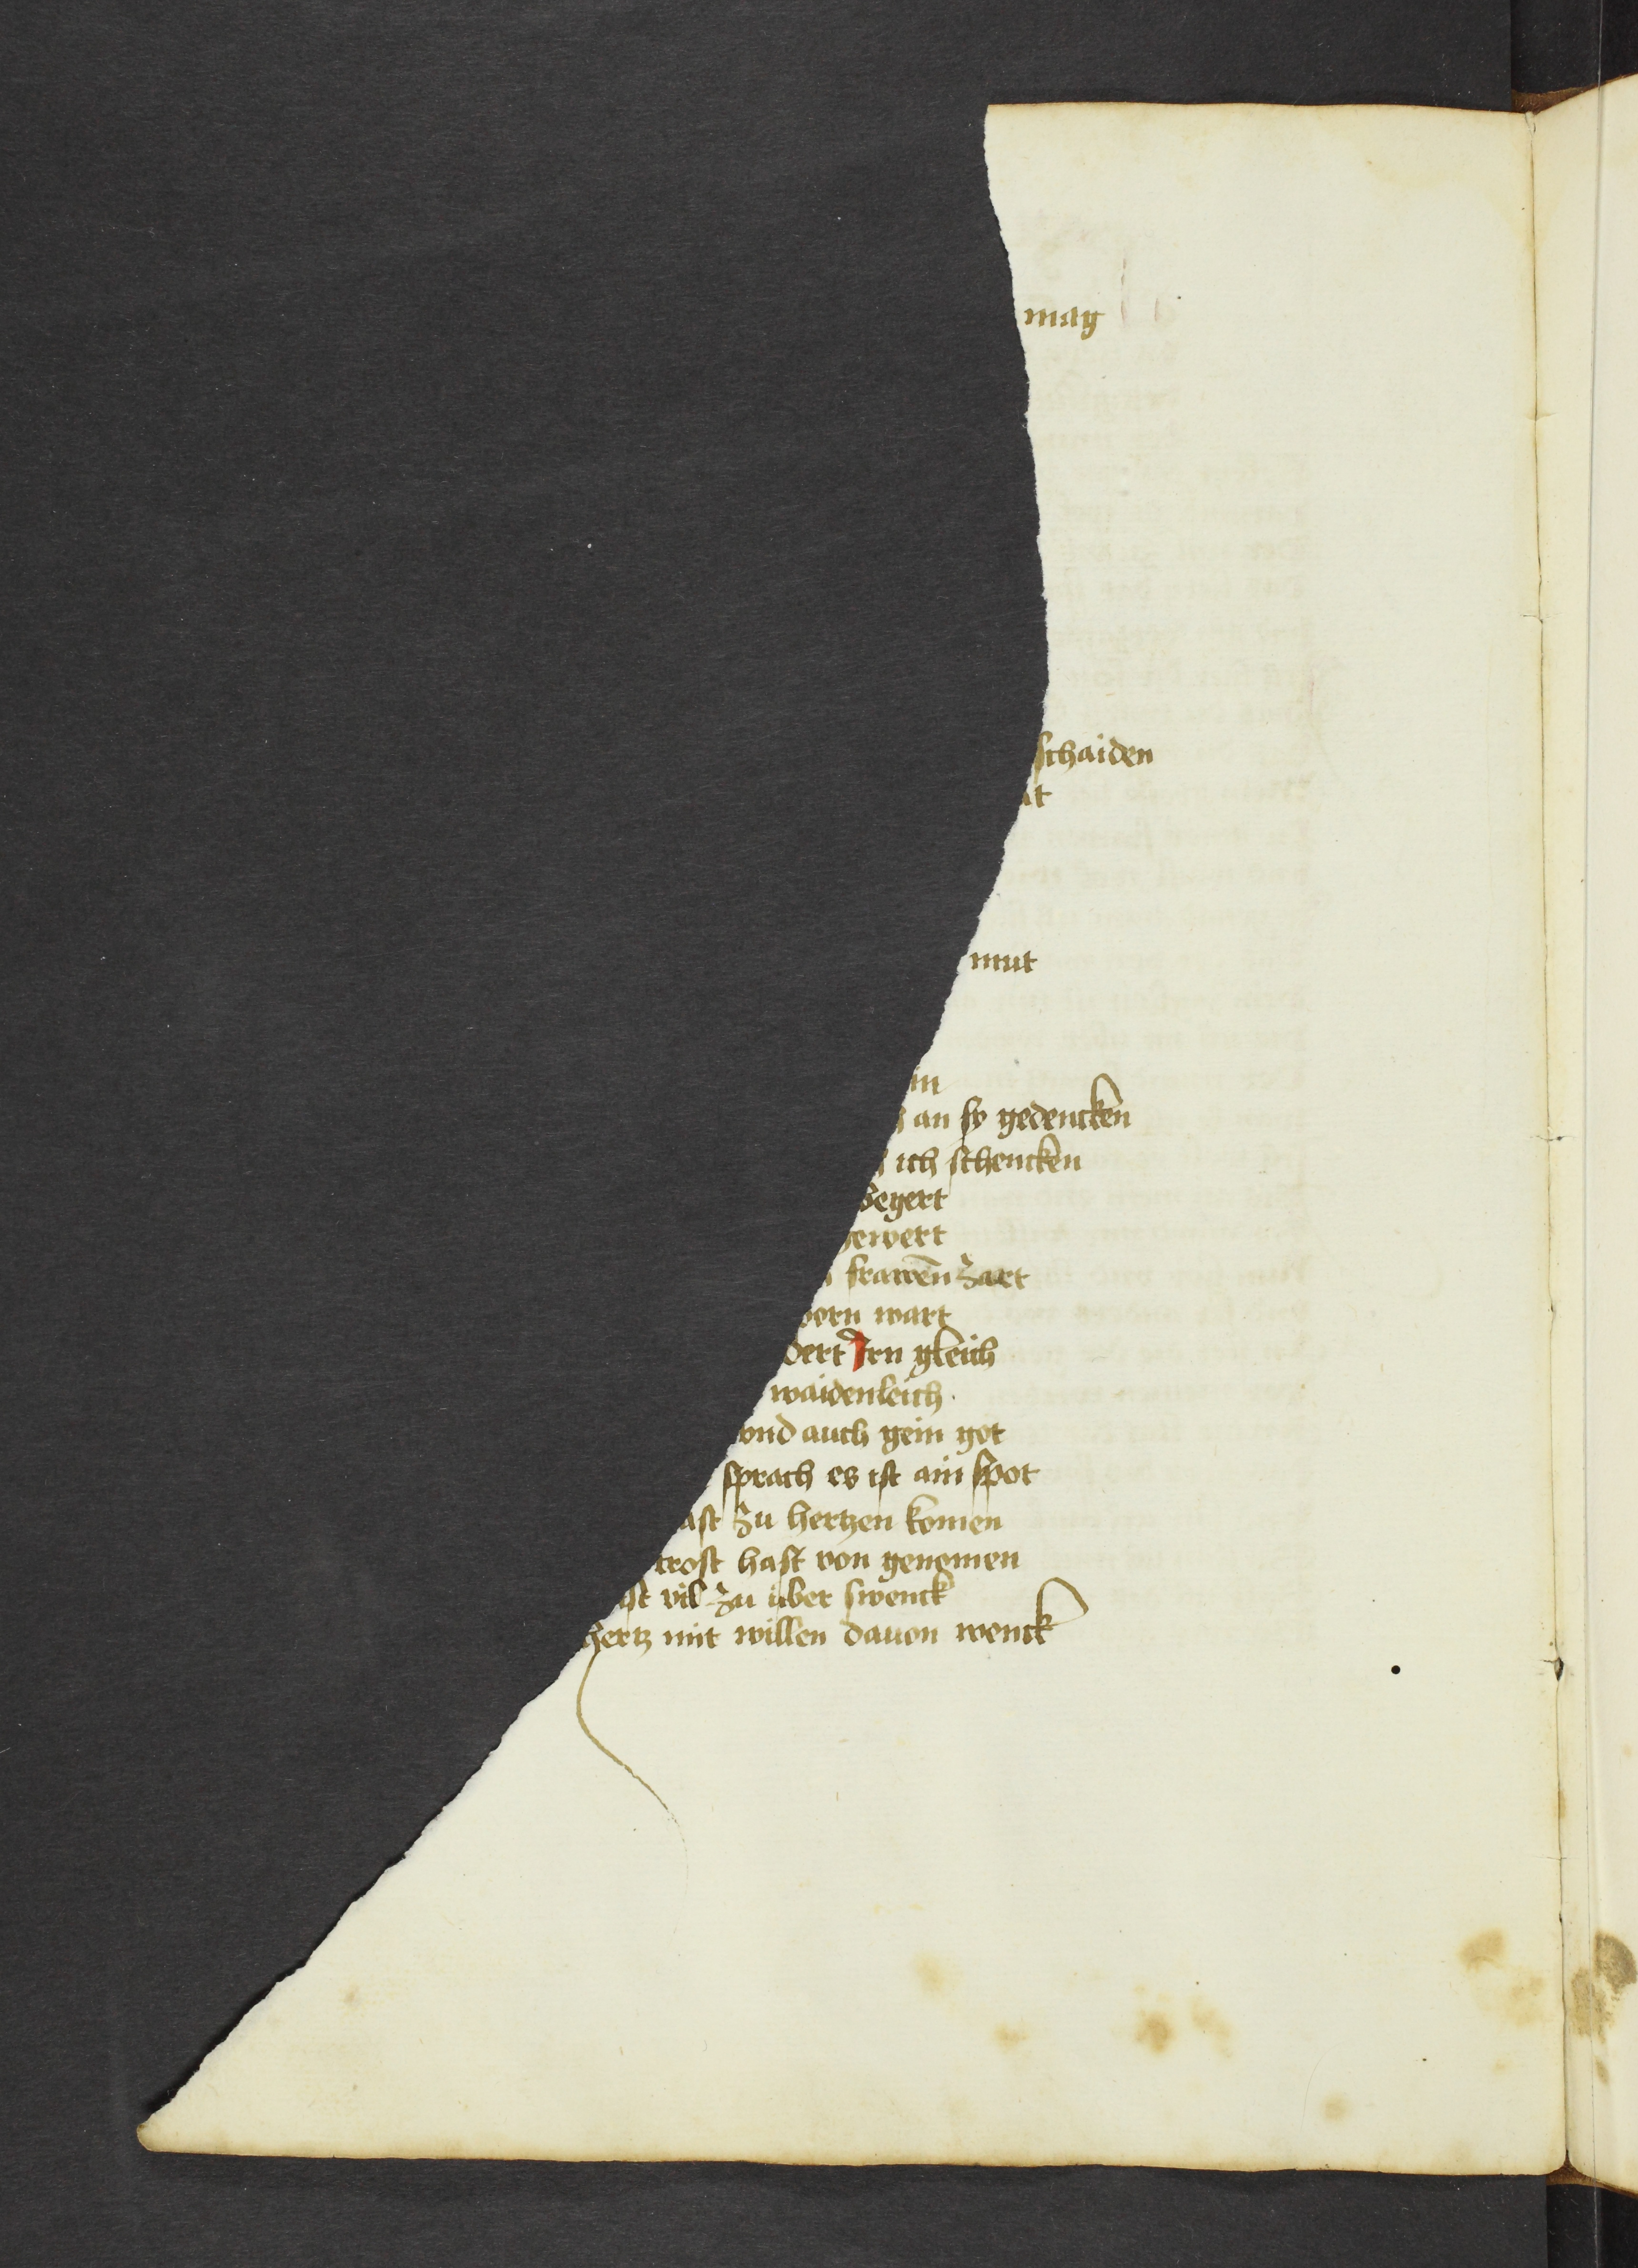 mag
schaiden
at
mut
in
an sy gedencken
ich schencken
begert
gewert
frawen̄ zart
worn wart
dert Irn gleich
waidenleich
vnd auch gein got
sprach es ist ain spot
ast zu hertzen komen
trost hast von genomen
ist vil zu über swenck
hertz mit willen dauon wenck